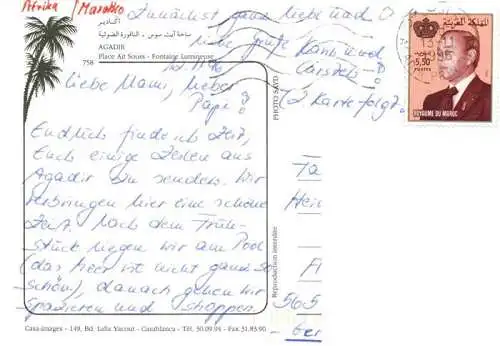 Afrika / Marokko
Zunächst ganz liebe nach D
أكادير
ساحة أيت سوس - النافورة الضوئية
AGADIR
Place Aït Souss - Fontaine Lumineuse
758
liebe Grüße
Carsten
(2. Karte folgt)
Liebe Mami, lieber
Papi!
Endlich finde ich Zeit,
Euch einige Zeilen aus
Agadir zu senden. Wir
verbringen hier eine schöne
Zeit. Nach dem Früh-
stück liegen wir am Pool
(das Meer ist nicht ganz so
schön), danach gehen wir
spazieren und shoppen.
PHOTO SAVO
Reproduction interdite
565
Casa-images - 149, Bd. Lalla Yacout - Casablanca - Tél. 30.09.94 - Fax 31.83.90
المملكة المغربية
5,50
POSTES
ROYAUME DU MAROC
1995